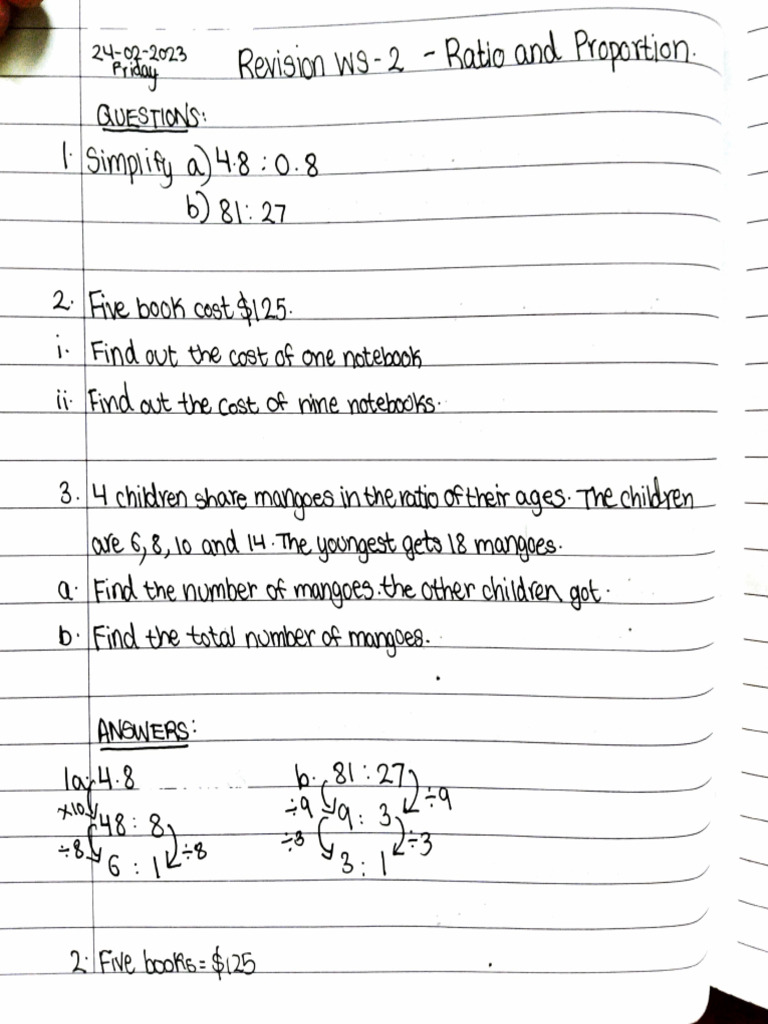 24-02-2023
Friday
Revision WS-2 - Ratio and Proportion.
QUESTIONS:
1. Simplify a) 4.8 : 0.8
b) 81 : 27
2. Five book cost $125.
i. Find out the cost of one notebook
ii. Find out the cost of nine notebooks.
3. 4 children share mangoes in the ratio of their ages. The children
are 6, 8, 10 and 14. The youngest gets 18 mangoes.
a. Find the number of mangoes the other children got.
b. Find the total number of mangoes.
ANSWERS:
1a. 4.8 b. 81 : 27
×10 ÷9 ÷9
48 : 8 9 : 3
÷8 ÷8 ÷3 ÷3
6 : 1 3 : 1
2. Five books = $125